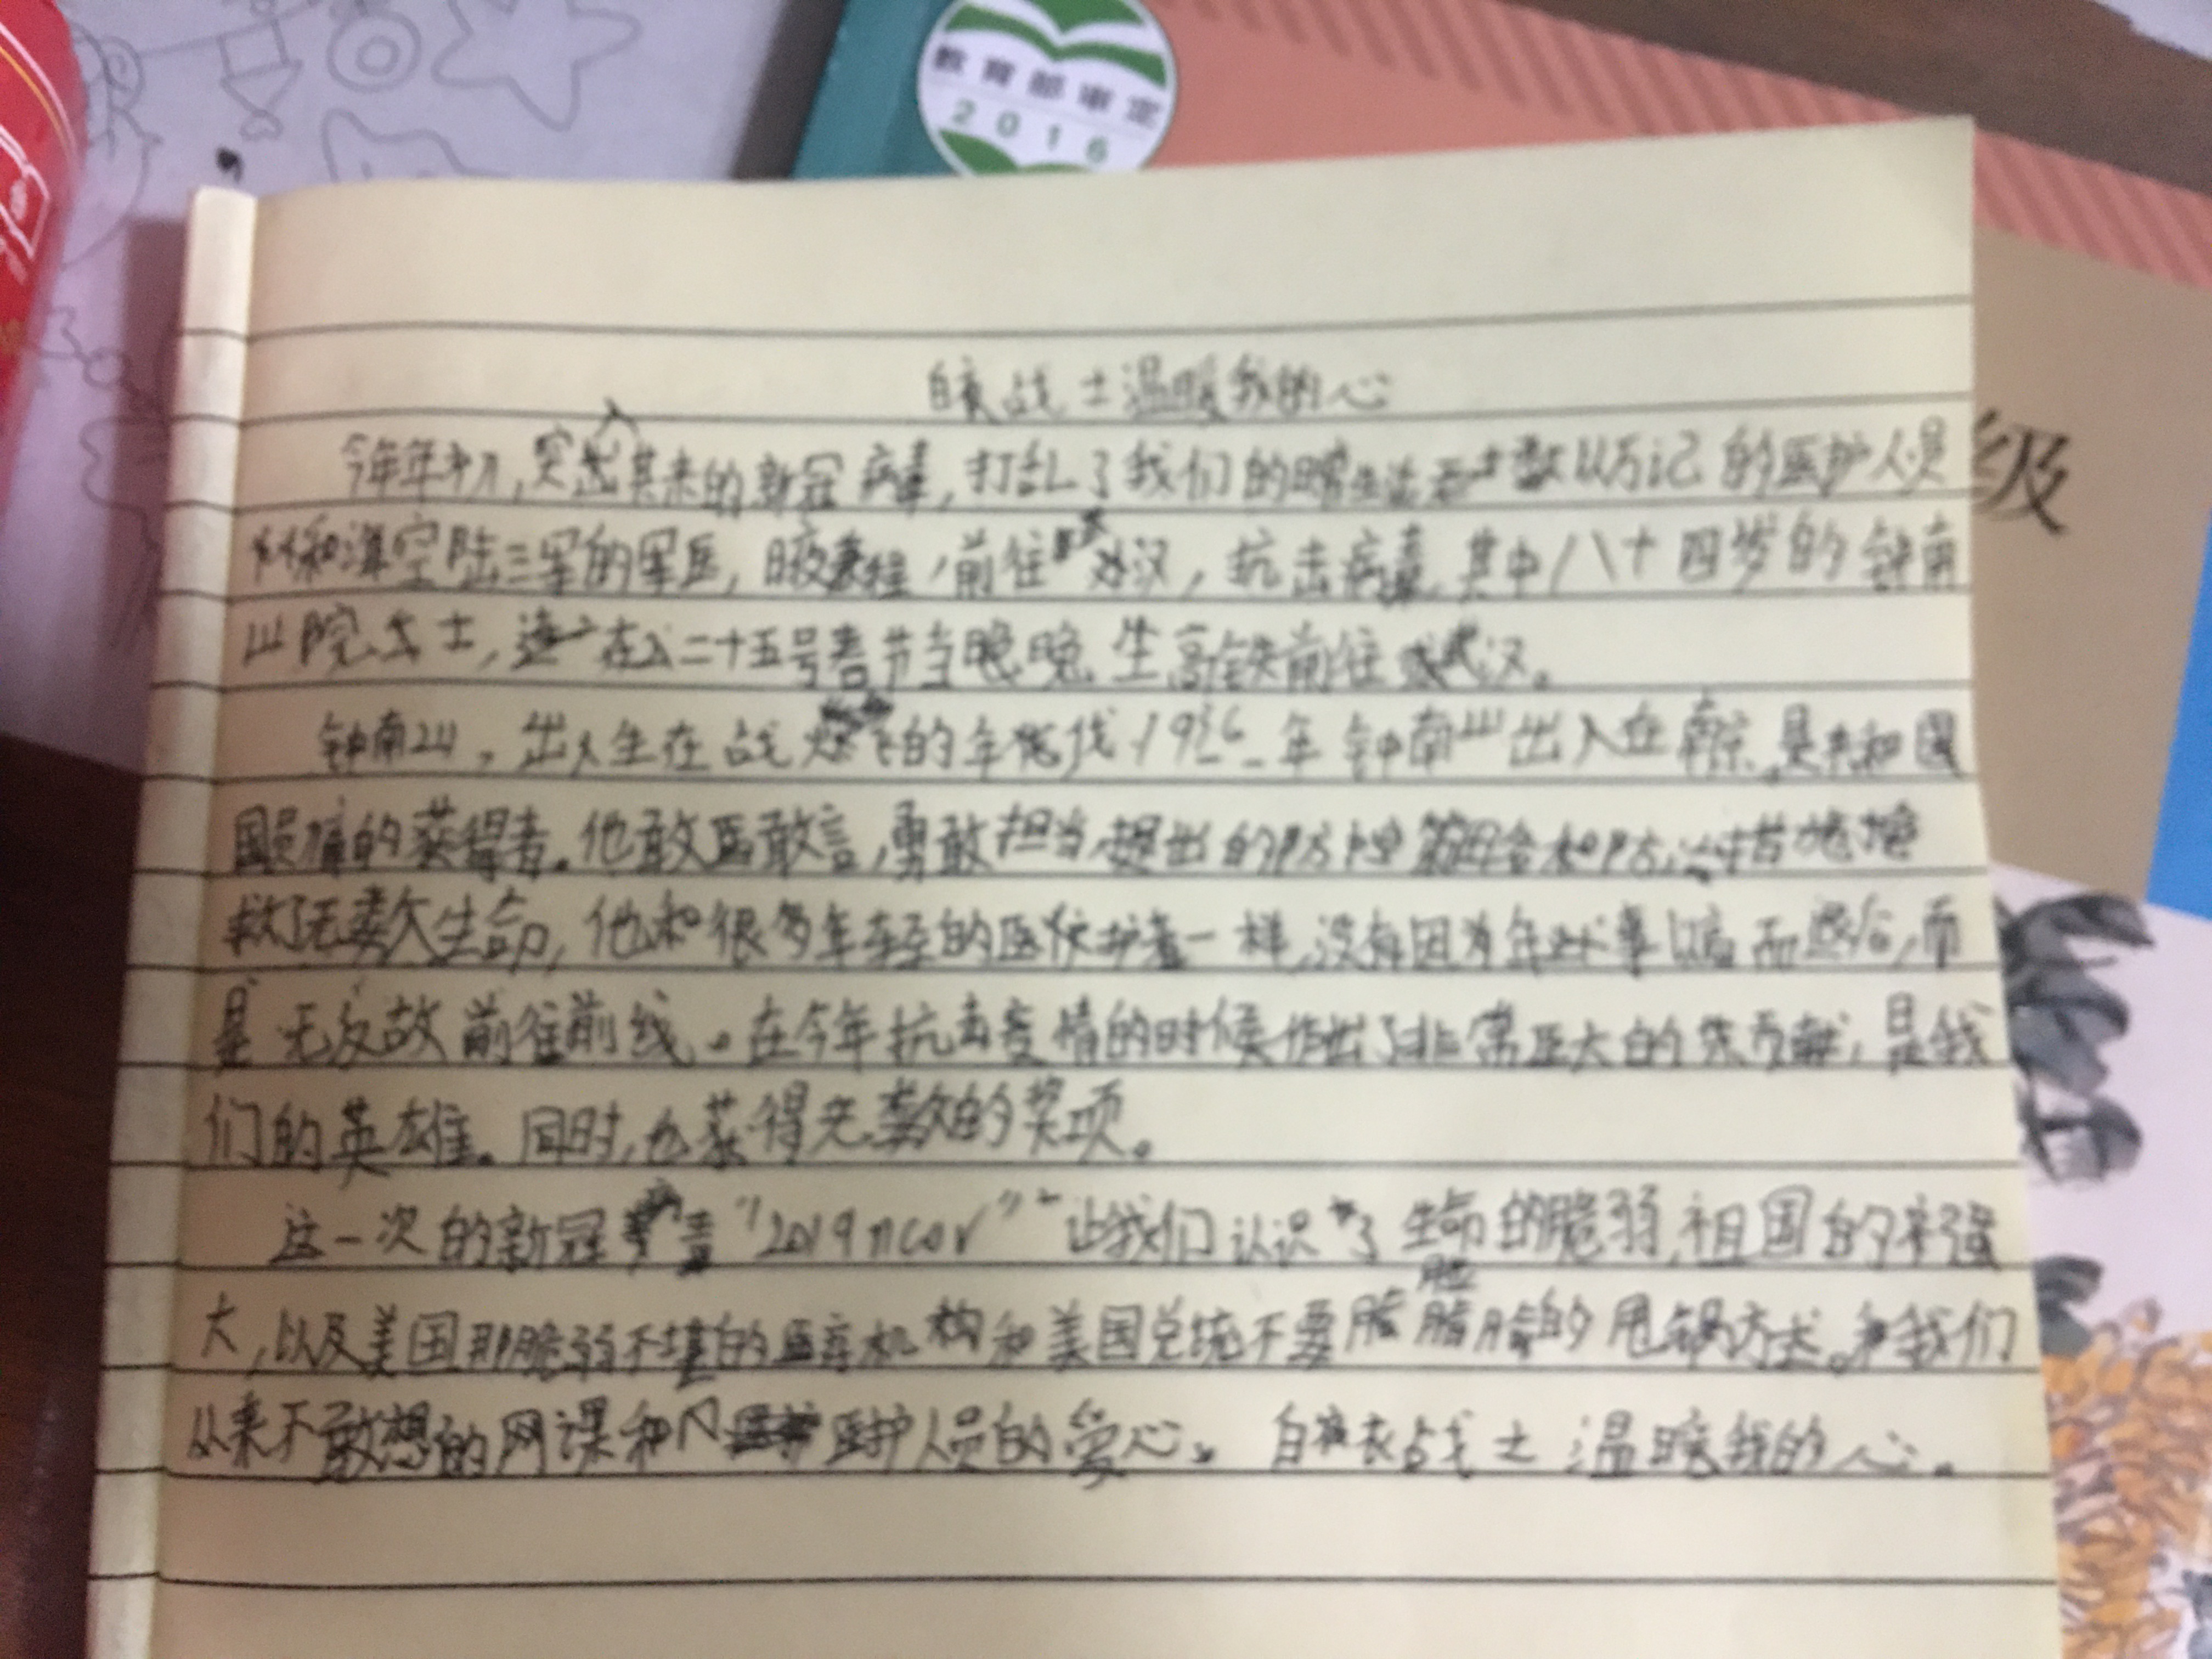 教育部审定
2016
级
白衣战士温暖我的心
今年年初,突如其来的新冠病毒,打乱了我们的 生活 数以万记的医护人员
和海空陆三军的军医, 前往武汉,抗击病毒,其中八十四岁的钟南
山院士, 在二十五号春节当晚 坐高铁前往武汉。
钟南山,出生在战火 的年代,1936年钟南山出入在南京,是共和国
国 的获得者。他敢医敢言,勇敢担当,提出的防控策略和防治措施挽
救了无数生命,他和很多年轻的医护者一样,没有因为年 而 后,而
是无反故前往前线。在今年抗击疫情的时候作出了非常巨大的贡献,是我
们的英雄。同时,也获得无数的奖项。
这一次的新冠病毒“2019ncov” 让我们认识了生命的脆弱,祖国的强
大,以及美国那脆弱不堪的医疗机构和美国总统不要脸的甩锅方式。和我们
从来不敢想的网课和医护人员的爱心。白衣战士温暖我的心。